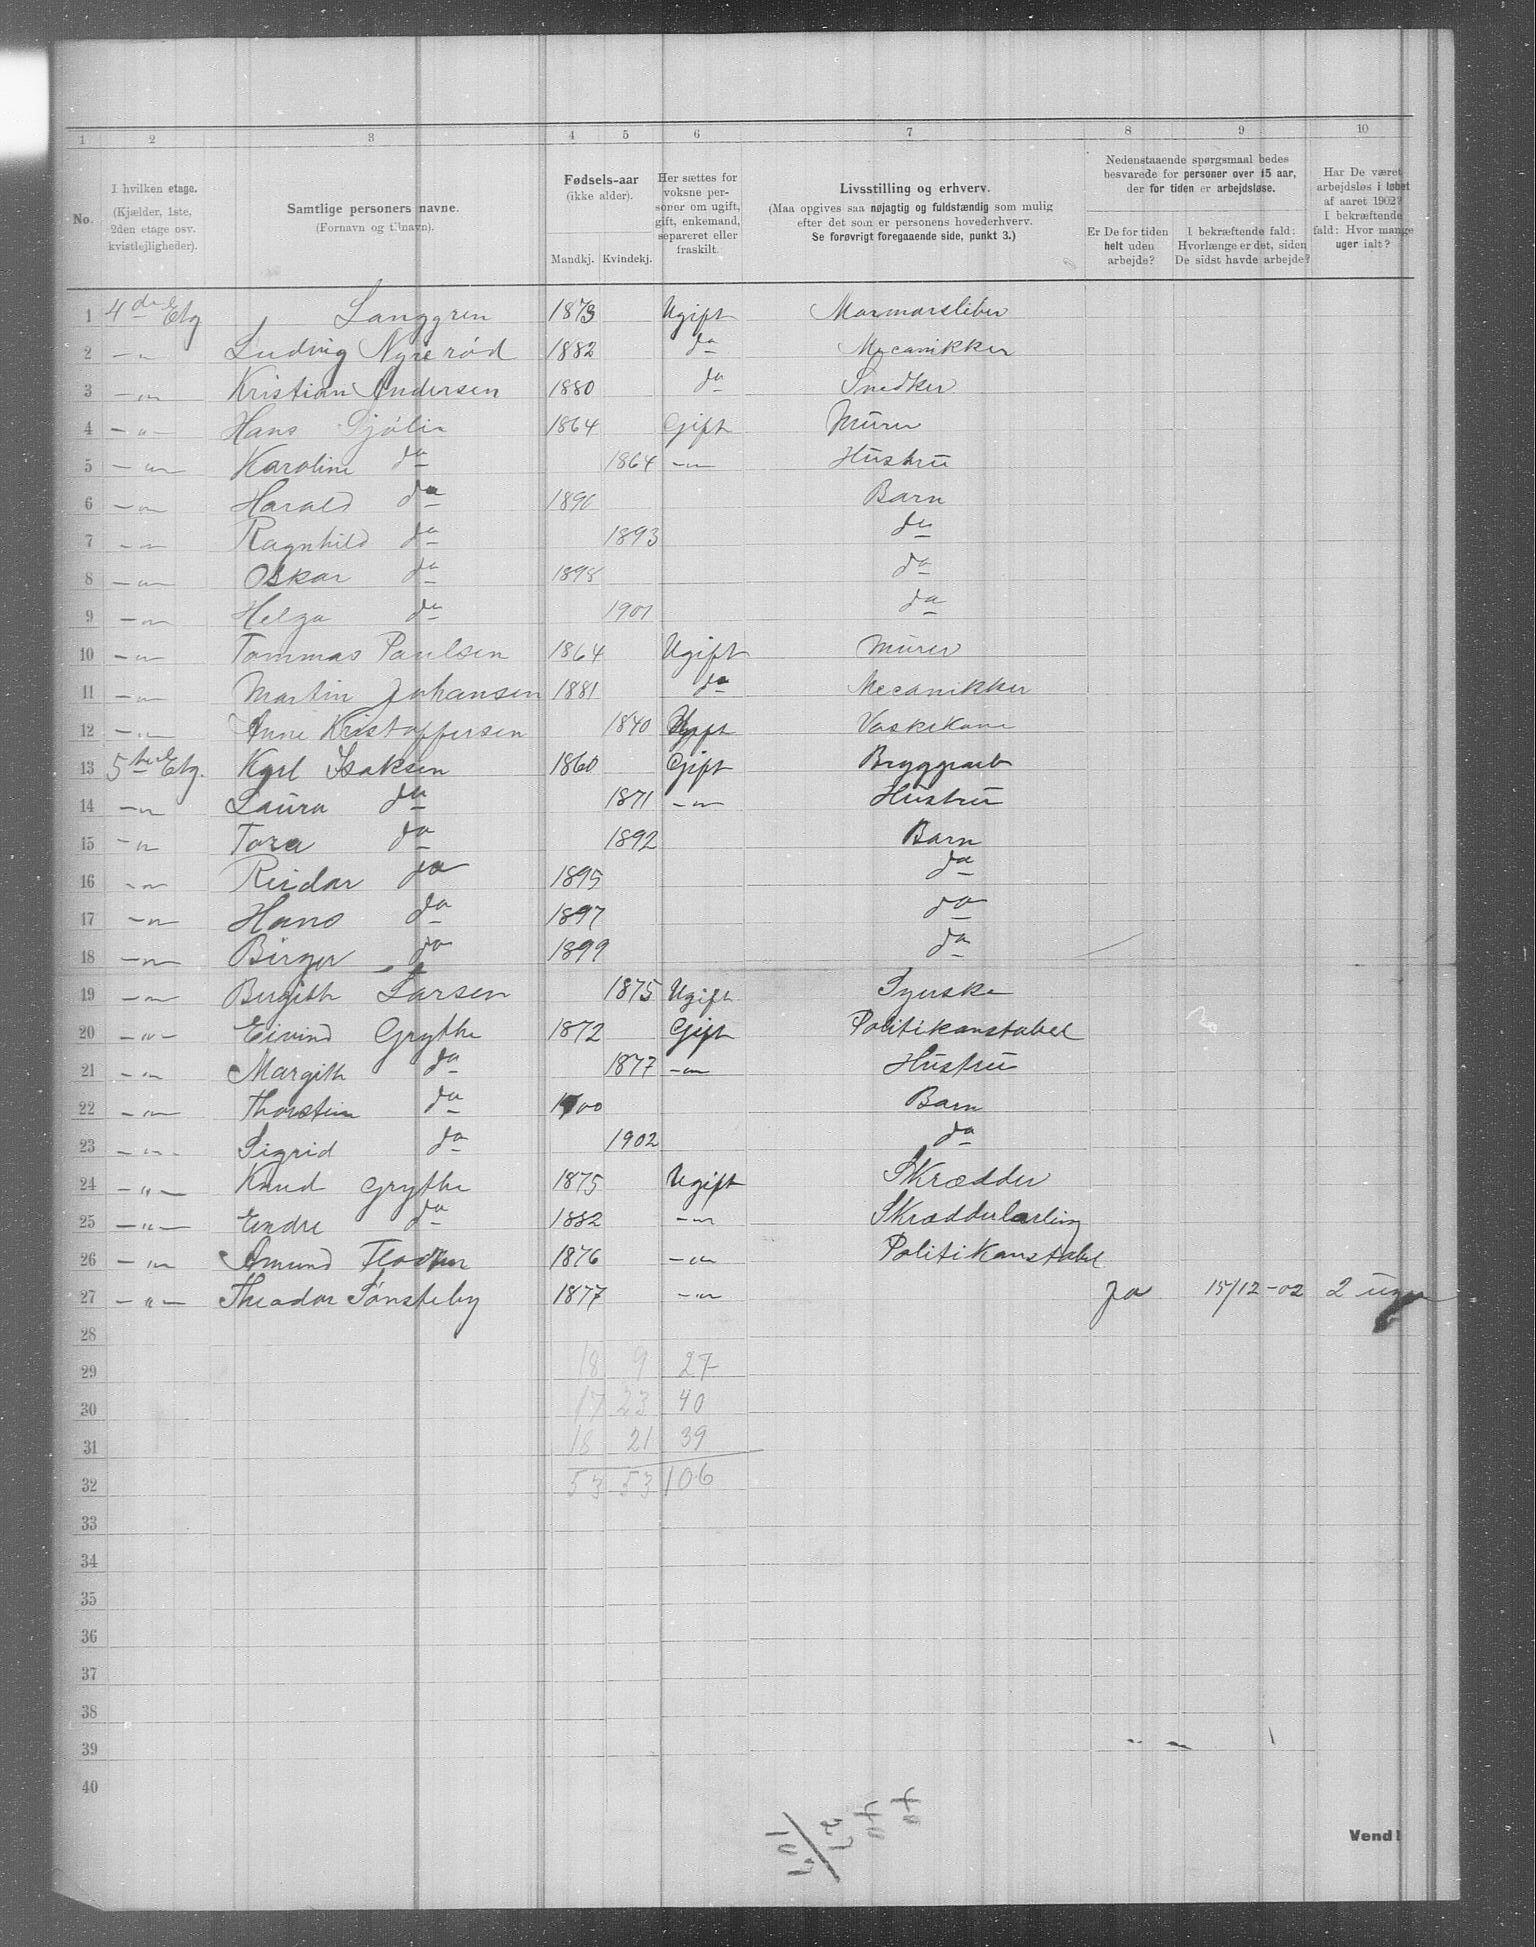 1 2 3 4 5 6 7 8 9 10
No.
I hvilken etage. (Kjælder, 1ste, 2den etage osv. kvistlejligheder).
Samtlige personers navne. (Fornavn og tilnavn).
Fødsels-aar (ikke alder). Mandkj. Kvindekj.
Her sættes for voksne personer om ugift, gift, enkemand, separeret eller fraskilt.
Livsstilling og erhverv. (Maa opgives saa nøjagtig og fuldstændig som mulig efter det som er personens hovederhverv. Se forøvrigt foregaaende side, punkt 3.)
Nedenstaaende spørgsmaal bedes besvarede for personer over 15 aar, der for tiden er arbejdsløse.
Er De for tiden helt uden arbejde?
I bekræftende fald: Hvorlænge er det, siden De sidst havde arbejde?
Har De været arbejdsløs i løbet af aaret 1902? I bekræftende fald: Hvor mange uger ialt?
1 4de Etg Langgren 1873 Ugift Marmorsliber
2 —"— Ludvig Nyrerød 1882 do Mecanikker
3 —"— Kristian Andersen 1880 do Snedker
4 —"— Hans Sjölin 1864 Gift Murer
5 —"— Karoline do 1864 —"— Hustru
6 —"— Harald do 1890 Barn
7 —"— Ragnhild do 1893 do
8 —"— Oskar do 1898 do
9 —"— Helga do 1901 do
10 —"— Tommas Paulsen 1864 Ugift Murer
11 —"— Martin Johansen 1881 do Mecanikker
12 —"— Anne Kristoffersen 1840 Ugift Vaskekone
13 5te Etg. Karl Isaksen 1860 Gift Bryggearb
14 —"— Laura do 1871 —"— Hustru
15 —"— Tora do 1892 Barn
16 —"— Reidar do 1895 do
17 —"— Hans do 1897 do
18 —"— Birger do 1899 do
19 —"— Birgith Larsen 1875 Ugift Syerske
20 —"— Eivind Grythe 1872 Gift Politikonstabel
21 —"— Margith do 1877 —"— Hustru
22 —"— Thorstein do 1900 Barn
23 —"— Sigrid do 1902 do
24 —"— Knud Grythe 1875 Ugift Skrædder
25 —"— Endre do 1882 —"— Skrædderlærling
26 —"— Amund 1876 —"— Politikonstabel
27 —"— Theodor Sønsteby 1877 —"— Ja 15/12-02 2 uger
28
29 18 9 27
30 17 23 40
31 18 21 39
32 53 53 106
33
34
35
36
37
38
39
40
40
40
27
107
Vend!